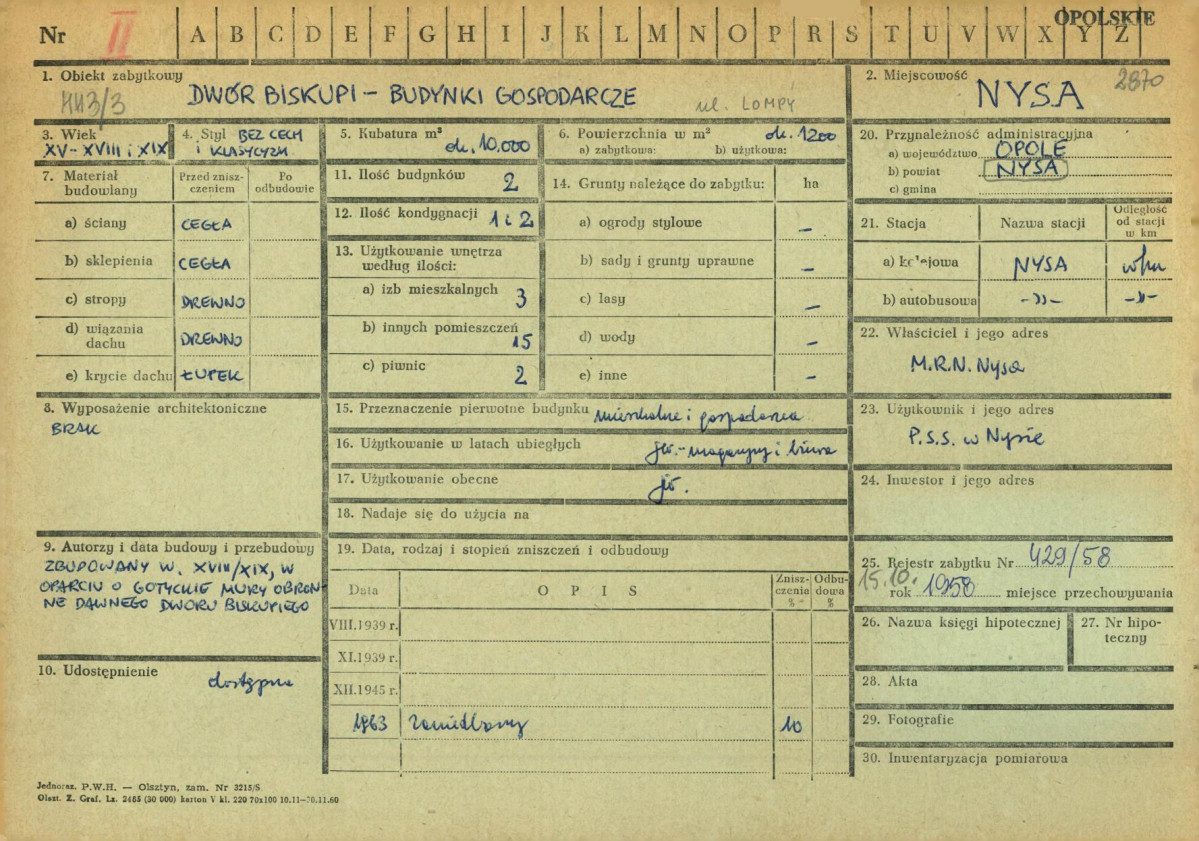 OPOLSKIE
Nr II A B C D E F G H I J K L M N O P R S T U V W X Y Z
1. Obiekt zabytkowy
443/3 DWÓR BISKUPI – BUDYNKI GOSPODARCZE ul. LOMPY
2. Miejscowość 2870
NYSA
3. Wiek
XV – XVIII i XIX
4. Styl BEZ CECH
i KLASYCYZM
5. Kubatura m³
ok. 10.000
6. Powierzchnia w m² ok. 1200
a) zabytkowa: b) użytkowa:
20. Przynależność administracyjna
a) województwo OPOLE
b) powiat NYSA
c) gmina
7. Materiał budowlany
Przed zniszczeniem
Po odbudowie
a) ściany CEGŁA
b) sklepienia CEGŁA
c) stropy DREWNO
d) wiązania dachu DREWNO
e) krycie dachu ŁUPEK
11. Ilość budynków 2
12. Ilość kondygnacji 1 i 2
13. Użytkowanie wnętrza
według ilości:
a) izb mieszkalnych 3
b) innych pomieszczeń 15
c) piwnic 2
14. Grunty należące do zabytku: ha
a) ogrody stylowe –
b) sady i grunty uprawne –
c) lasy –
d) wody –
e) inne –
21. Stacja
Nazwa stacji
Odległość
od stacji
w km
a) kolejowa NYSA
b) autobusowa -"- -"-
22. Właściciel i jego adres
M.R.N. Nysa
8. Wyposażenie architektoniczne
BRAK
15. Przeznaczenie pierwotne budynku mieszkalne i gospodarcze
16. Użytkowanie w latach ubiegłych jw.-magazyny i biura
17. Użytkowanie obecne jw.
18. Nadaje się do użycia na
23. Użytkownik i jego adres
P.S.S. w Nysie
24. Inwestor i jego adres
9. Autorzy i data budowy i przebudowy
ZBUDOWANY W. XVIII/XIX, W
OPARCIU O GOTYCKIE MURY OBRON-
NE DAWNEGO DWORU BISKUPIEGO
10. Udostępnienie
dostępne
19. Data, rodzaj i stopień zniszczeń i odbudowy
Data
O P I S
Zniszczenia %
Odbudowa %
VIII.1939 r.
XI.1939 r.
XII.1945 r.
1963 zaniedbany 10
25. Rejestr zabytku Nr 429/58
15.10.
rok 1958 miejsce przechowywania
26. Nazwa księgi hipotecznej
27. Nr hipoteczny
28. Akta
29. Fotografie
30. Inwentaryzacja pomiarowa
Jednoraz. P.W.H. — Olsztyn, zam. Nr 3215/S
Olszt. Z. Graf. Lz. 2485 (30 000) karton V kl. 220 70x100 10.11—30.11.60